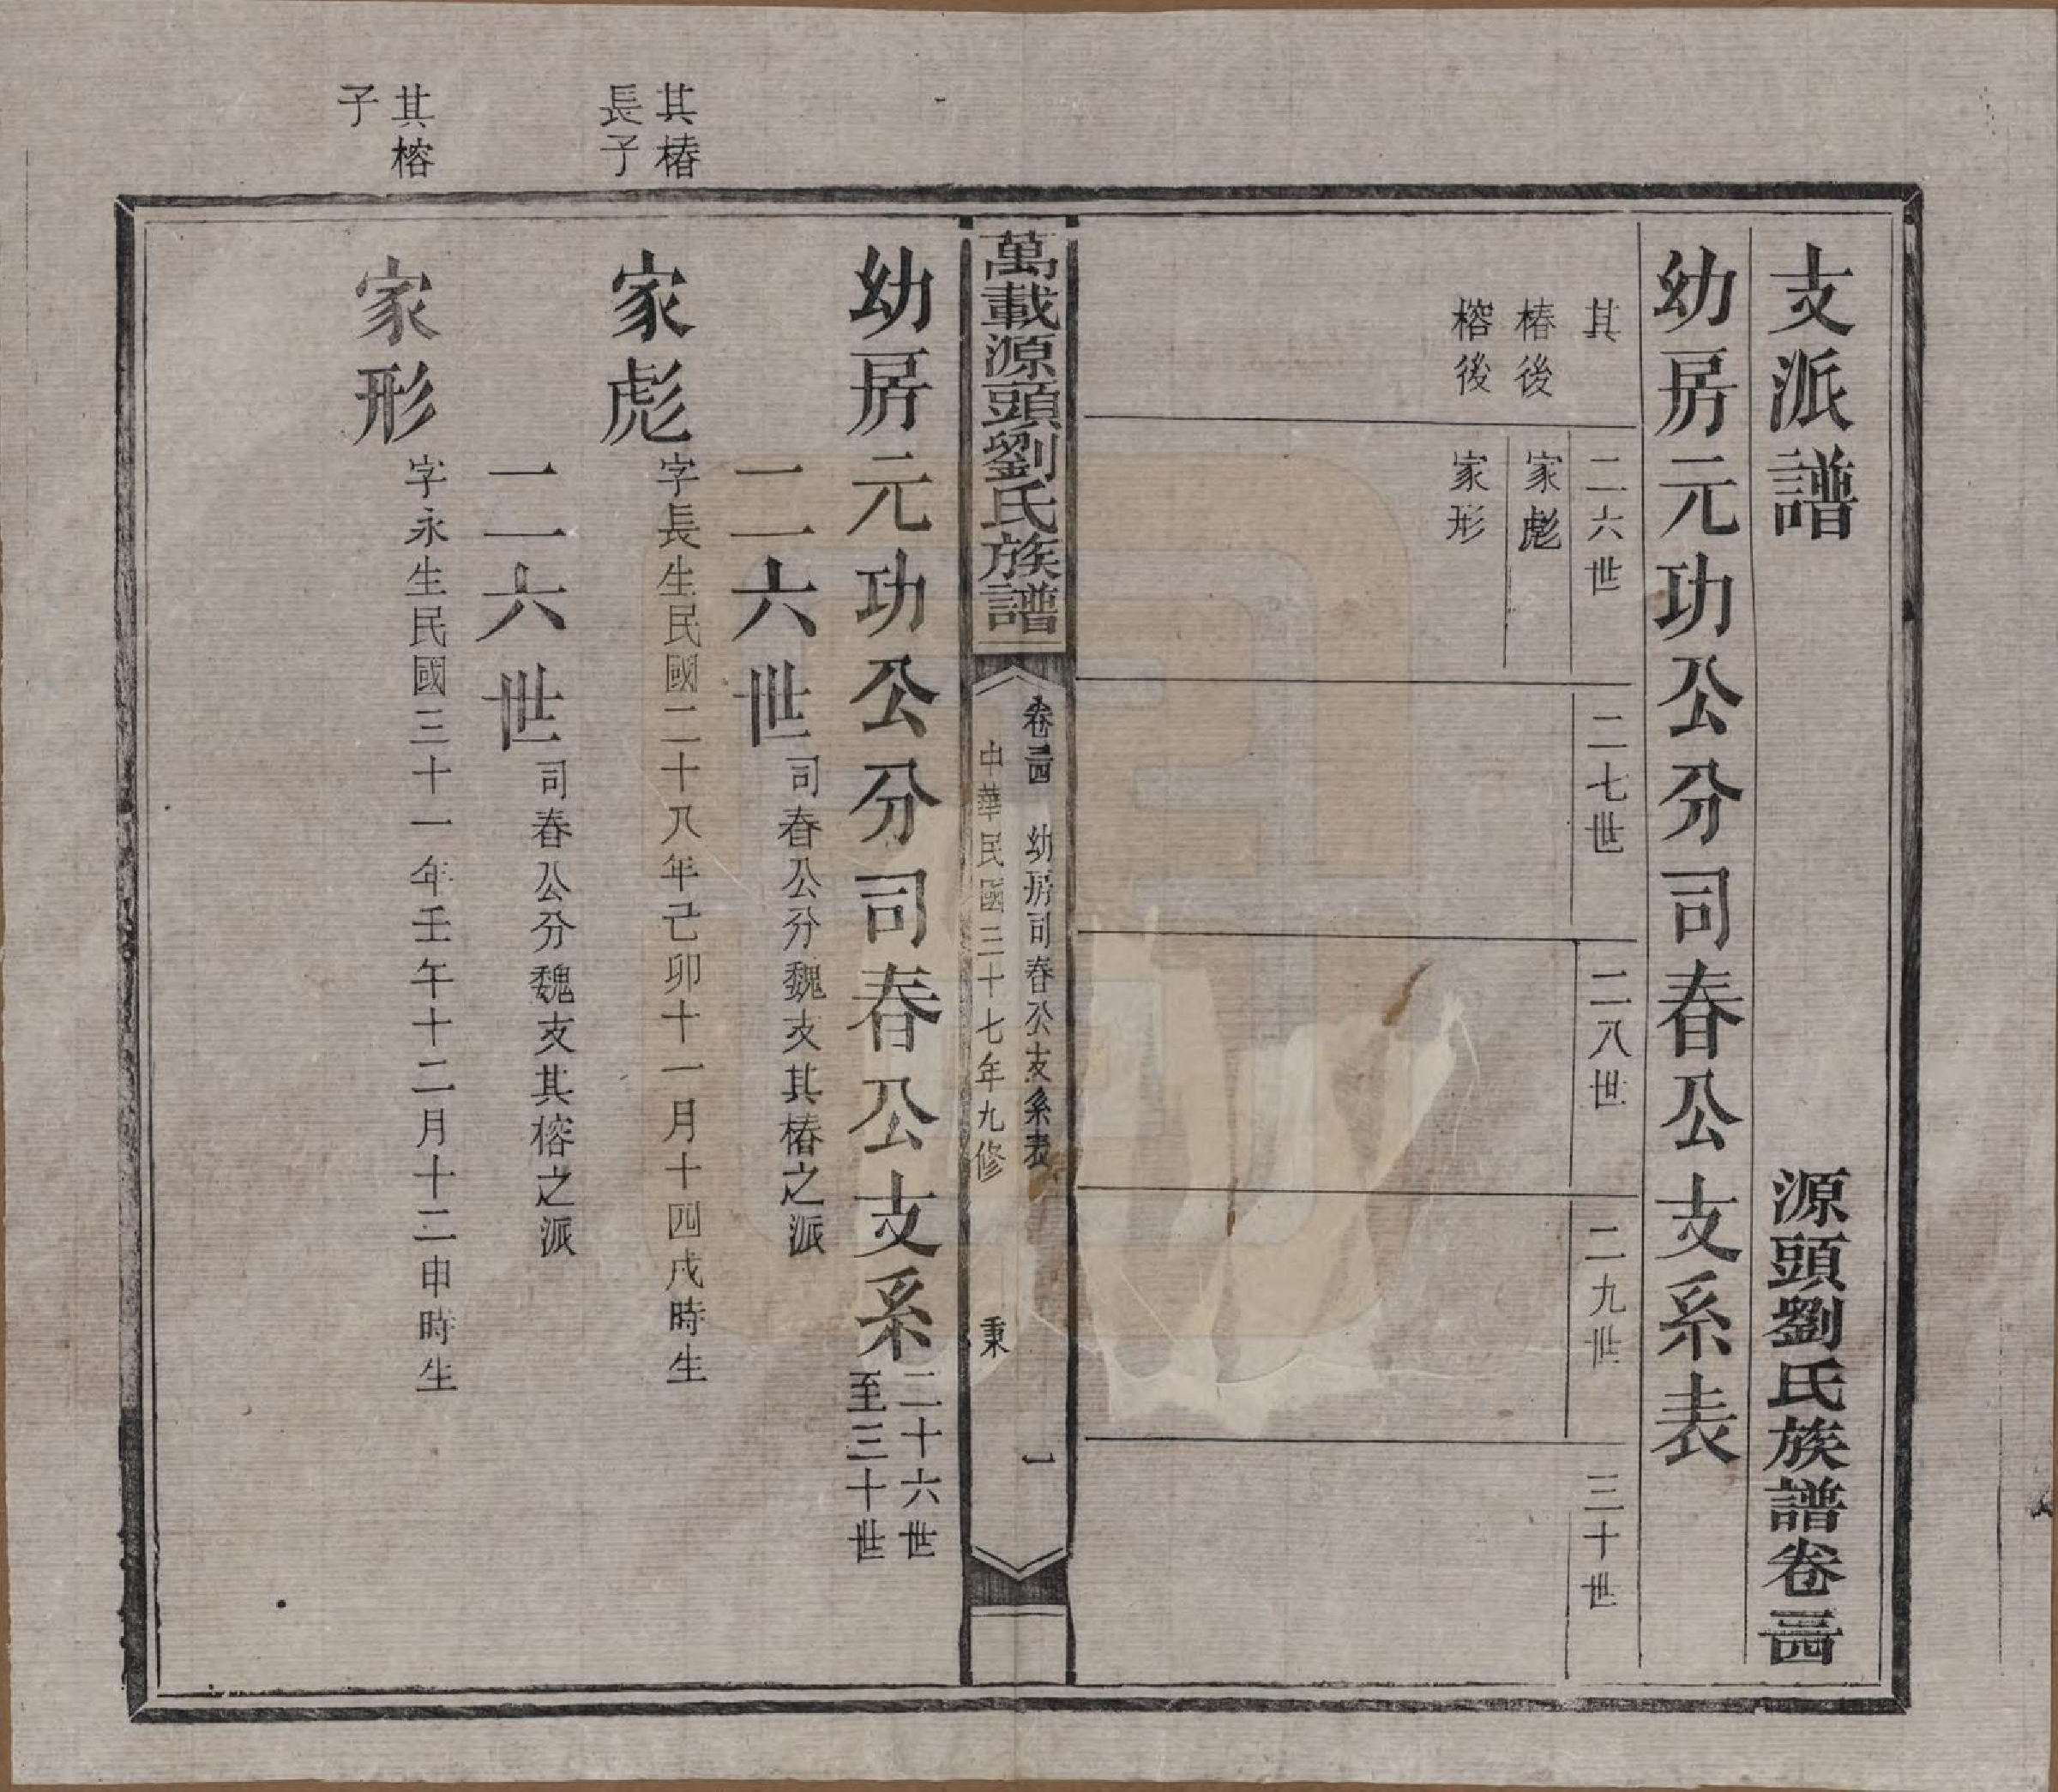 支派譜　源頭劉氏族譜卷三四
幼房元功公分司春公支系表
其
椿後
榕後
二六世
家彪
家形
二七世
二八世
二九世
三十世
萬載源頭劉氏族譜
卷三四　幼房司春公支系表　一
中華民國三十七年九修　秉
幼房元功公分司春公支系
二十六世
至三十世
二六世司春公分魏支其椿之派
其椿
長子
家彪
字長生民國二十八年己卯十一月十四戌時生
二六世司春公分魏支其榕之派
其榕
子
家形
字永生民國三十一年壬午十二月十二申時生